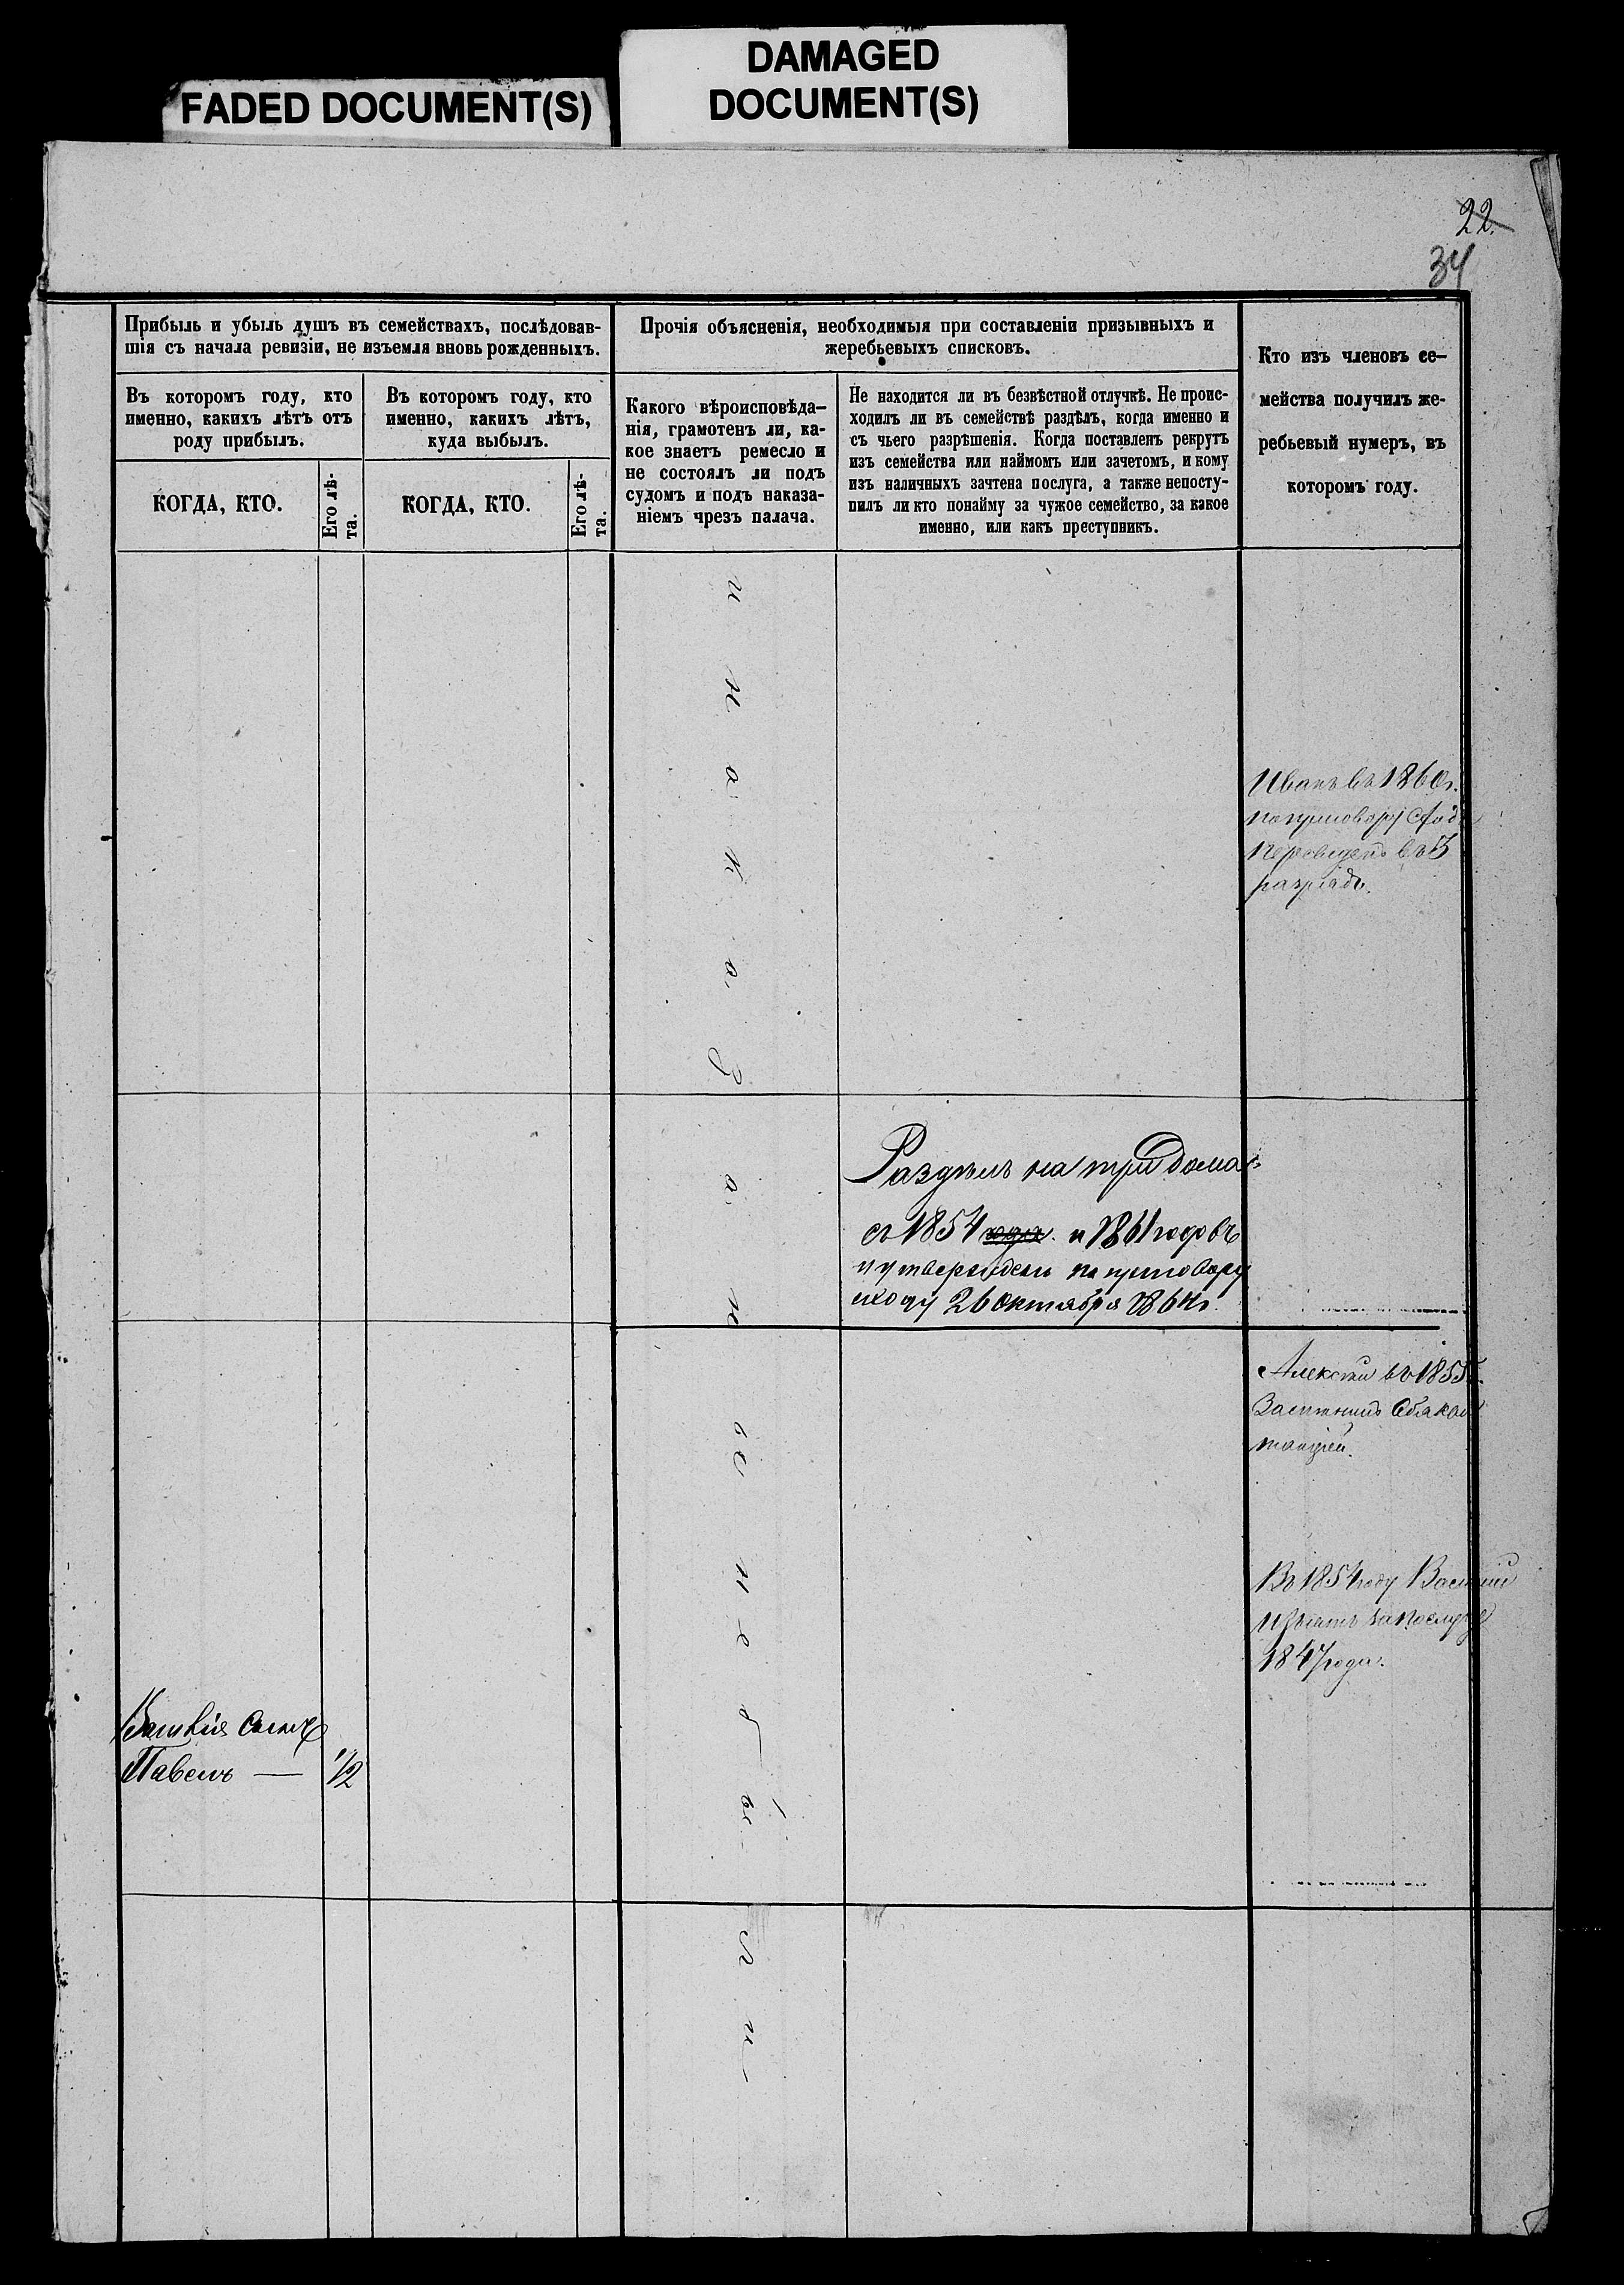 FADED DOCUMENT(S)
DAMAGED
DOCUMENT(S)
22.
34
Прибыль и убыль душъ въ семействахъ, послѣдовав-
шія съ начала ревизіи, не изъемля вновь рожденныхъ.
Въ которомъ году, кто
именно, какихъ лѣтъ отъ
роду прибылъ.
КОГДА, КТО.
Его лѣ-
та.
Въ которомъ году, кто
именно, какихъ лѣтъ,
куда выбылъ.
КОГДА, КТО.
Его лѣ-
та.
Прочія объясненія, необходимыя при составленіи призывныхъ и
жеребьевыхъ списковъ.
Какого вѣроисповѣда-
нія, грамотенъ ли, ка-
кое знаетъ ремесло и
не состоялъ ли подъ
судомъ и подъ наказа-
ніемъ чрезъ палача.
Не находится ли въ безвѣстной отлучкѣ. Не проис-
ходилъ ли въ семействѣ раздѣлъ, когда именно и
съ чьего разрѣшенія. Когда поставленъ рекрутъ
изъ семейства или наймомъ или зачетомъ, и кому
изъ наличныхъ зачтена послуга, а также непосту-
пилъ ли кто понайму за чужое семейство, за какое
именно, или какъ преступникъ.
Кто изъ членовъ се-
мейства получилъ же-
ребьевый нумеръ, въ
которомъ году.
Иванъ въ 1860г.
по приговору
переведенъ въ 3
разрядъ.
Раздѣлъ на три дома
съ 1854 и 1861 годовъ
и утвержденъ по приговору
сходу 26 октября 1864г.
Алексѣй въ 1855
Въ 1854 году Василій
изъятъ за послугу
1847 года.
Павелъ — 1/2
и н а к а з а н
не был и